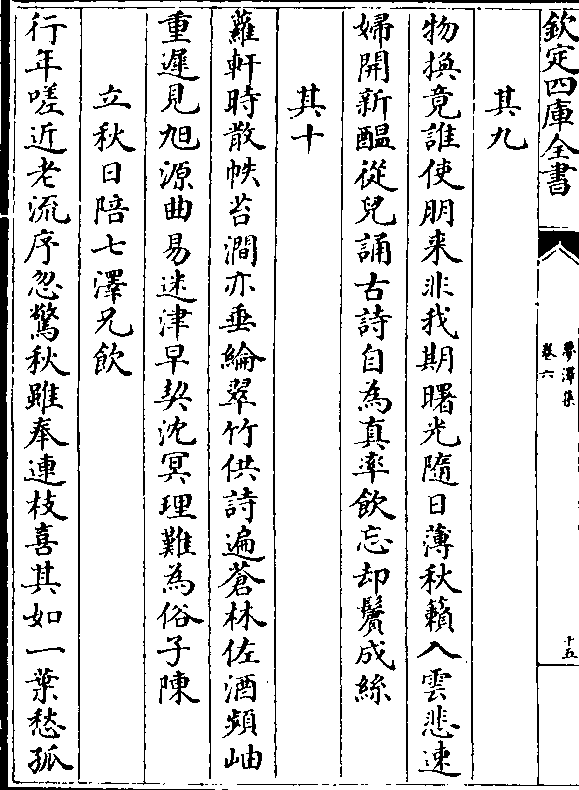 欽定四庫全書
夢澤集
卷六
十五
其九
物換竟誰使朋来非我期曙光隨日薄秋籟入雲悲速
婦開新醖從兒誦古詩自為真率飲忘却鬢成絲
其十
蘿軒時散帙苔澗亦垂綸翠竹供詩遍蒼林佐酒頻岫
重遲見旭源曲易迷津早契沈冥理難為俗子陳
立秋日陪七澤兄飲
行年嗟近老流序忽驚秋雖奉連枝喜其如一葉愁孤